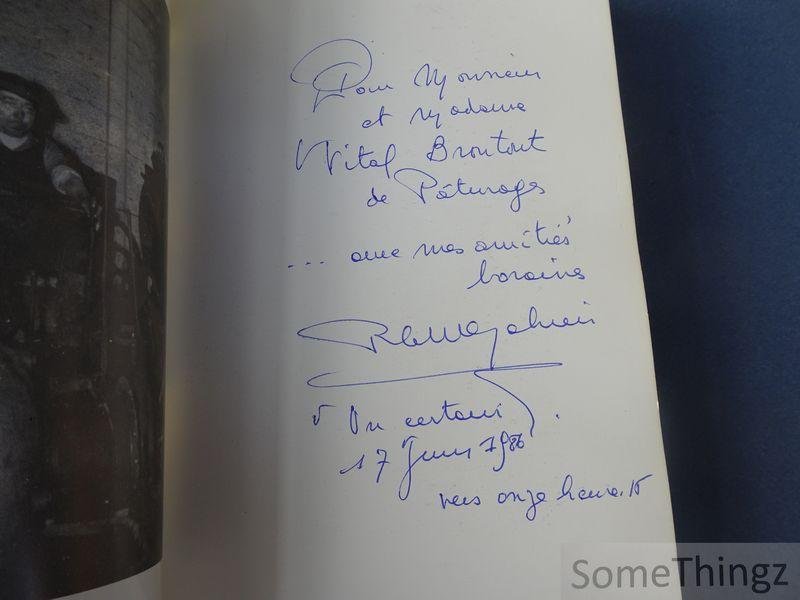 Pour Monsieur
et Madame
Vital Brontout
de Pâturages
... avec mes amitiés
boraines
Un certain
17 Juin 1986
vers onze heures 15
SomeThingz